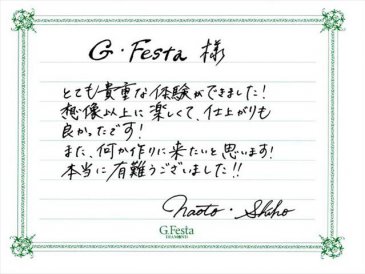 G・Festa 様
とても貴重な体験ができました!
想像以上に楽しくて、仕上がりも
良かったです!
また、何か作りに来たいと思います!
本当に有難うございました!!
naoto・Shiho
G.Festa
DIAMOND